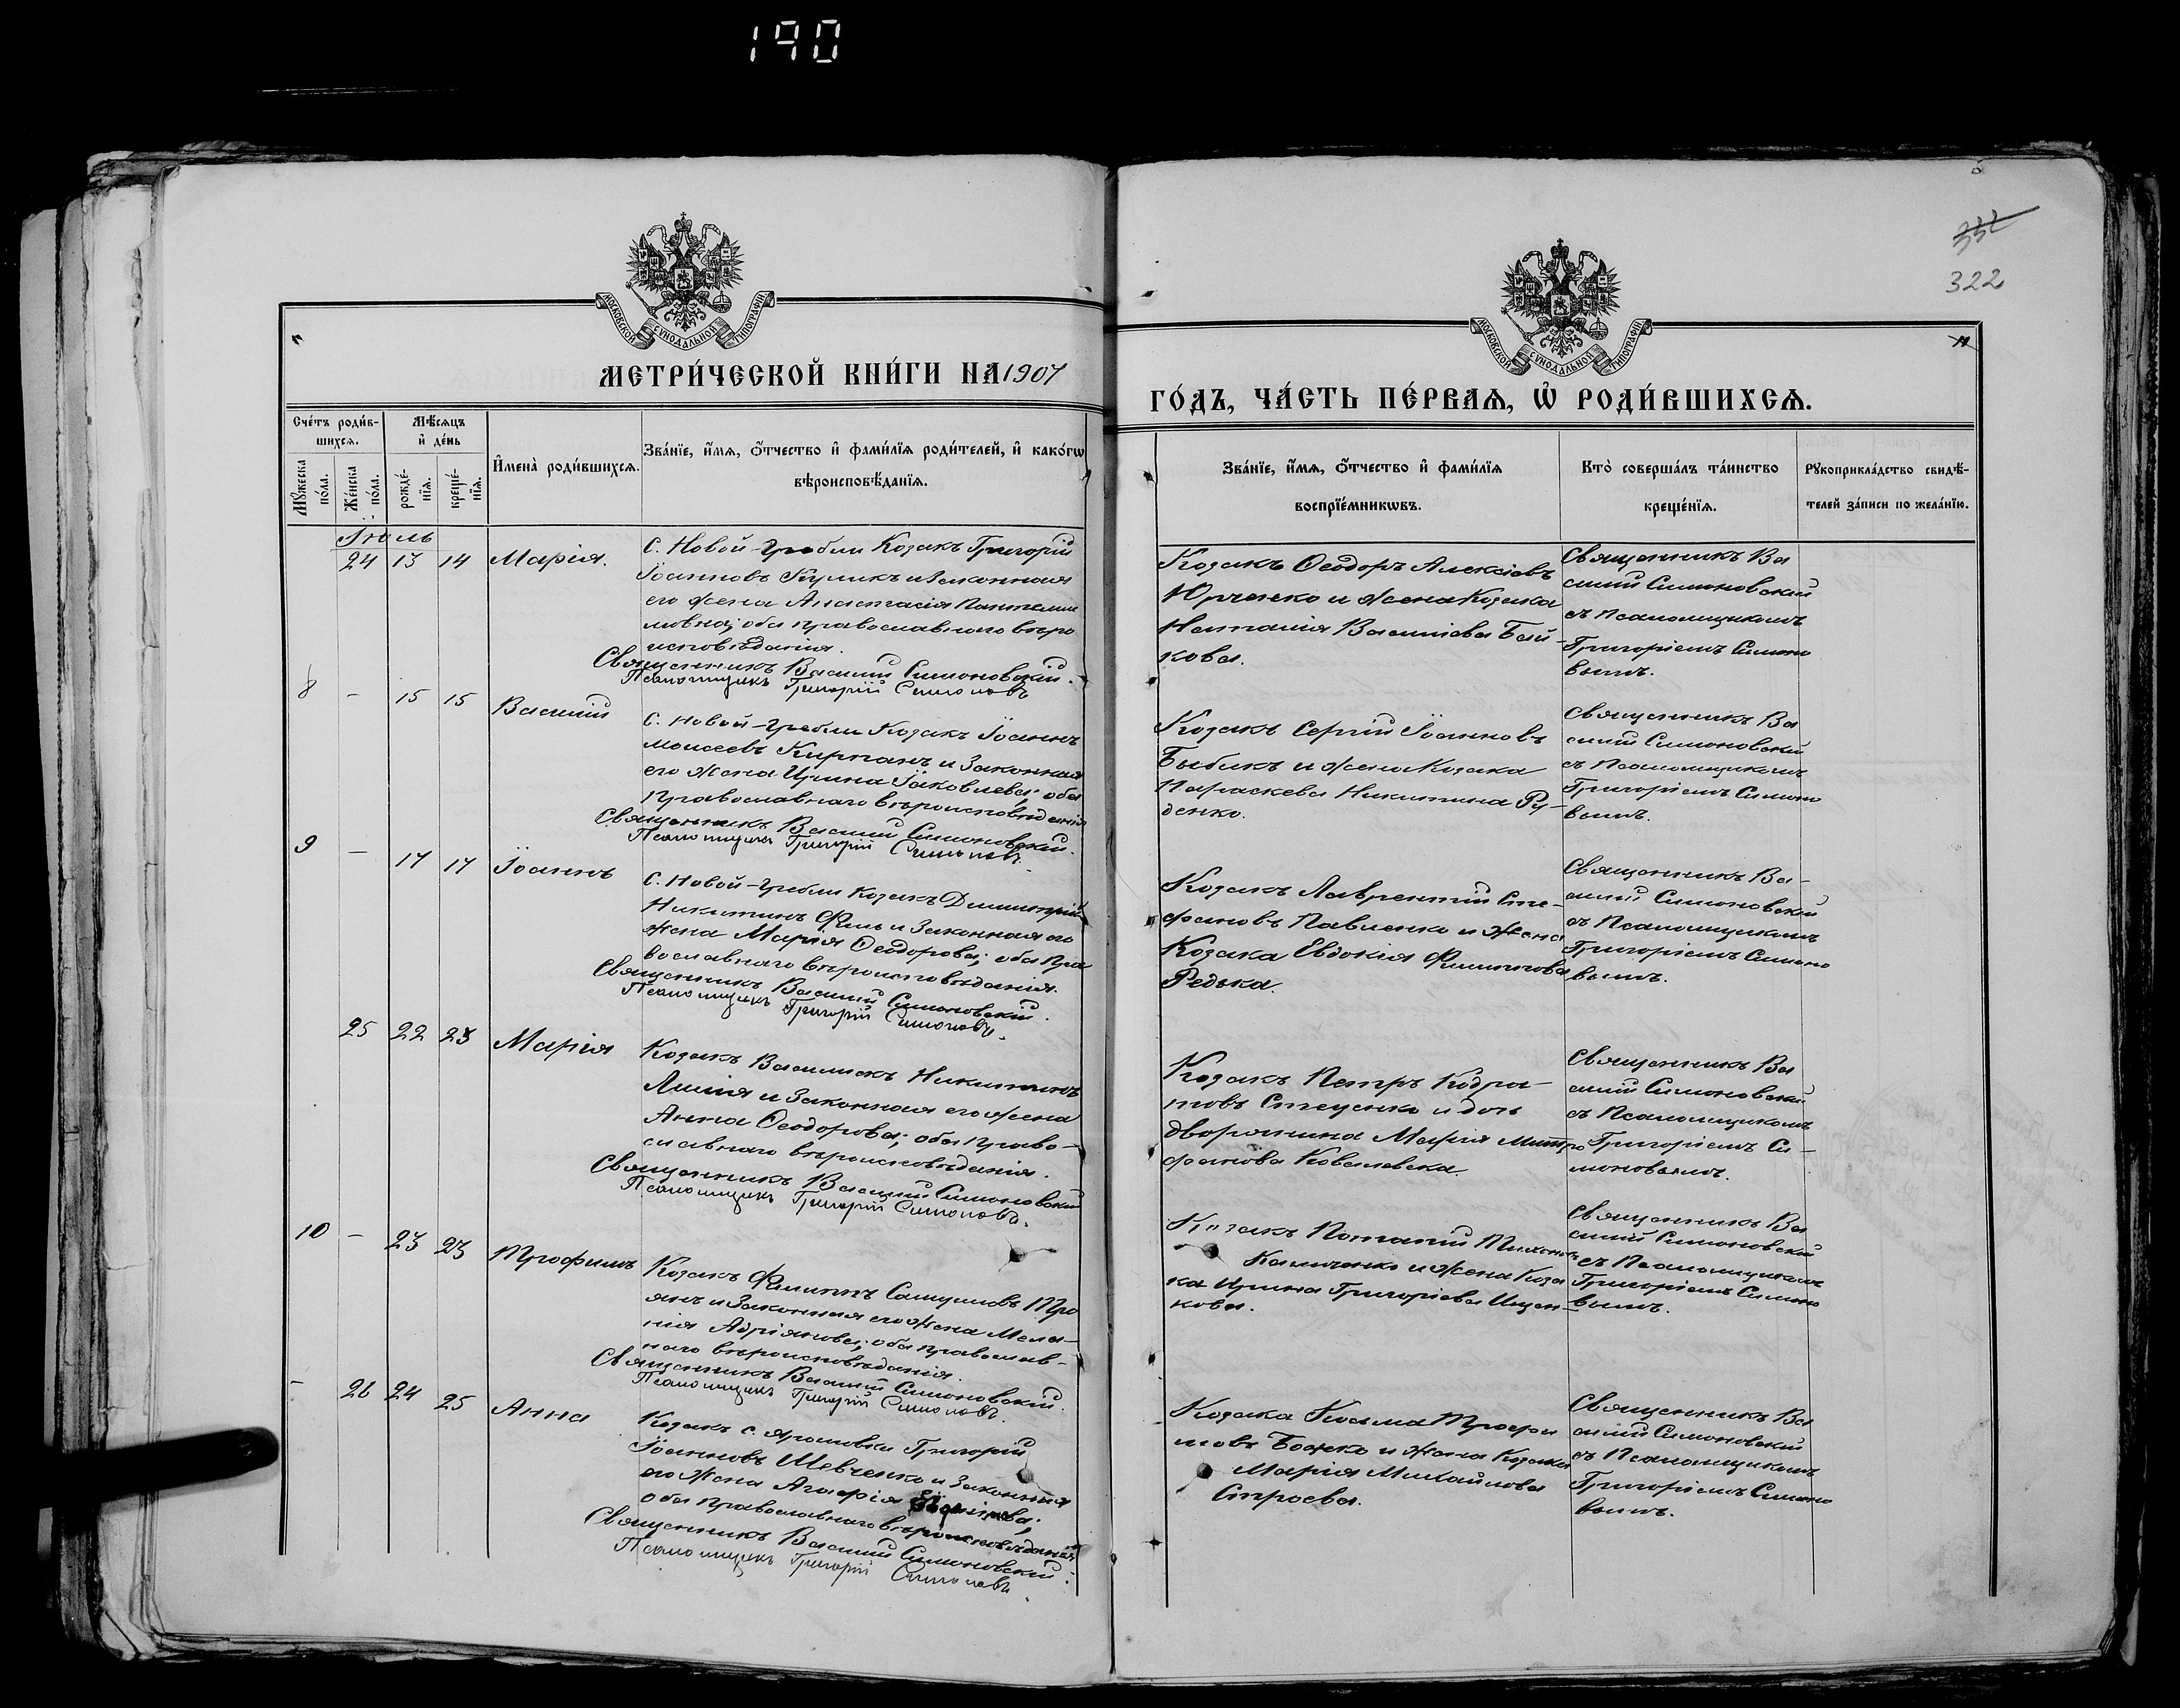 190
332
322
МОСКОВСКОЙ СУНОДАЛЬНОЙ ТИПОГРАФІИ.
МОСКОВСКОЙ СУНОДАЛЬНОЙ ТИПОГРАФІИ.
МЕТРИ́ЧЕСКОЙ КНИ́ГИ НА 1907
ГО́ДЪ, ЧА́СТЬ ПЕ́РВАѦ, Ѽ РОДИ́ВШИХСѦ.
Сче́тъ роди́в-
шихсѧ.
Мѣ́сѧцъ
и҆ де́нь
Мꙋ́жеска
по́ла.
Же́нска
по́ла.
рожде́-
нїѧ.
креще́-
нїѧ.
И҆мена̀ роди́вшихсѧ.
Зва́нїе, и҆́мѧ, ѻ҆́тчество и҆ фами́лїѧ роди́телей, и҆ како́гѡ
вѣроисповѣ́данїѧ.
Зва́нїе, и҆́мѧ, ѻ҆́тчество и҆ фами́лїѧ
воспрїе́мникѡвъ.
Кто̀ соверша́лъ та́инство
креще́нїѧ.
Рꙋкоприкла́дство свидѣ́-
телей за́писи по жела́нїю.
Іюль
24 13 14 Марія.
С. Новой-Гребли Козакъ Григорій
Іоанновъ Куликъ и Законная
его жена Анастасія Пантелеи
мовна; оба православнаго вѣро
исповѣданія.
Священникъ Василій Симоновскій.
Псаломщикъ Григорій Симоновъ
Козакъ Ѳеодоръ Алексіевъ
Юрченко и жена Козака
Наталія Василіева Бай-
кова.
Священникъ Ва
силій Симоновскій
съ Псаломщикомъ
Григоріемъ Симоно
вымъ.
8 - 15 15 Василій
С. Новой-Гребли Козакъ Іоаннъ
Моисеевъ Кирпанъ и Законная
его жена Ирина Іаковлева; оба
Православнаго вѣроисповѣданія
Священникъ Василій Симоновскій.
Псаломщикъ Григорій Симоновъ.
Козакъ Сергій Іоанновъ
Быбикъ и жена Козака
Параскева Никитина Ру-
денко.
Священникъ Ва
силій Симоновскій
съ Псаломщикомъ
Григоріемъ Симоно
вымъ.
9 - 17 17 Іоаннъ
С. Новой-Гребли Козакъ Димитрій
Никитинъ Филь и Законная его
жена Марія Ѳеодорова; оба Пра
вославнаго вѣроисповѣданія.
Священникъ Василій Симоновскій.
Псаломщикъ Григорій Симоновъ.
Козакъ Лаврентій Сте-
фановъ Павленко и жена
Козака Евдокія Филиппова
Редька.
Священникъ Ва-
силій Симоновскій
съ Псаломщикомъ
Григоріемъ Симоно
вымъ.
25 22 23 Марія
Козакъ Василискъ Никитинъ
и Законная его жена
Анна Ѳеодорова; оба Право-
славнаго вѣроисповѣданія.
Священникъ Василій Симоновскій
Псаломщикъ Григорій Симоновъ.
Козакъ Петръ Кодра-
товъ Стеценко и дочь
дворянина Марія Митро
фанова Ковалевска.
Священникъ Ва
силій Симоновскій
съ Псаломщикомъ
Григоріемъ Си-
моновымъ.
10 - 23 23 Трофимъ
Козакъ Филиппъ Самуиловъ Тро
янъ и Законная его жена Мела-
нія Адріанова; оба православ-
наго вѣроисповѣданія.
Священникъ Василій Симоновскій.
Псаломщикъ Григорій Симоновъ.
Козакъ Потапій Тихонов
и жена Коза
ка Ирина Григоріева Ищен-
кова.
Священникъ Ва
силій Симоновскій
съ Псаломщикомъ
Григоріемъ Симоно
вымъ.
- 26 24 25 Анна
Козакъ с. Григорій
Іоанновъ Шевченко и Законная
его жена Агафія
оба православнаго вѣроисповѣданія
Священникъ Василій Симоновскій.
Псаломщикъ Григорій Симоновъ.
Козака Косьма Трофи
мовъ Божко и жена Козака
Марія Михайлова
Строева.
Священникъ Ва
силій Симоновскій
съ Псаломщикомъ
Григоріемъ Симоно
вымъ.